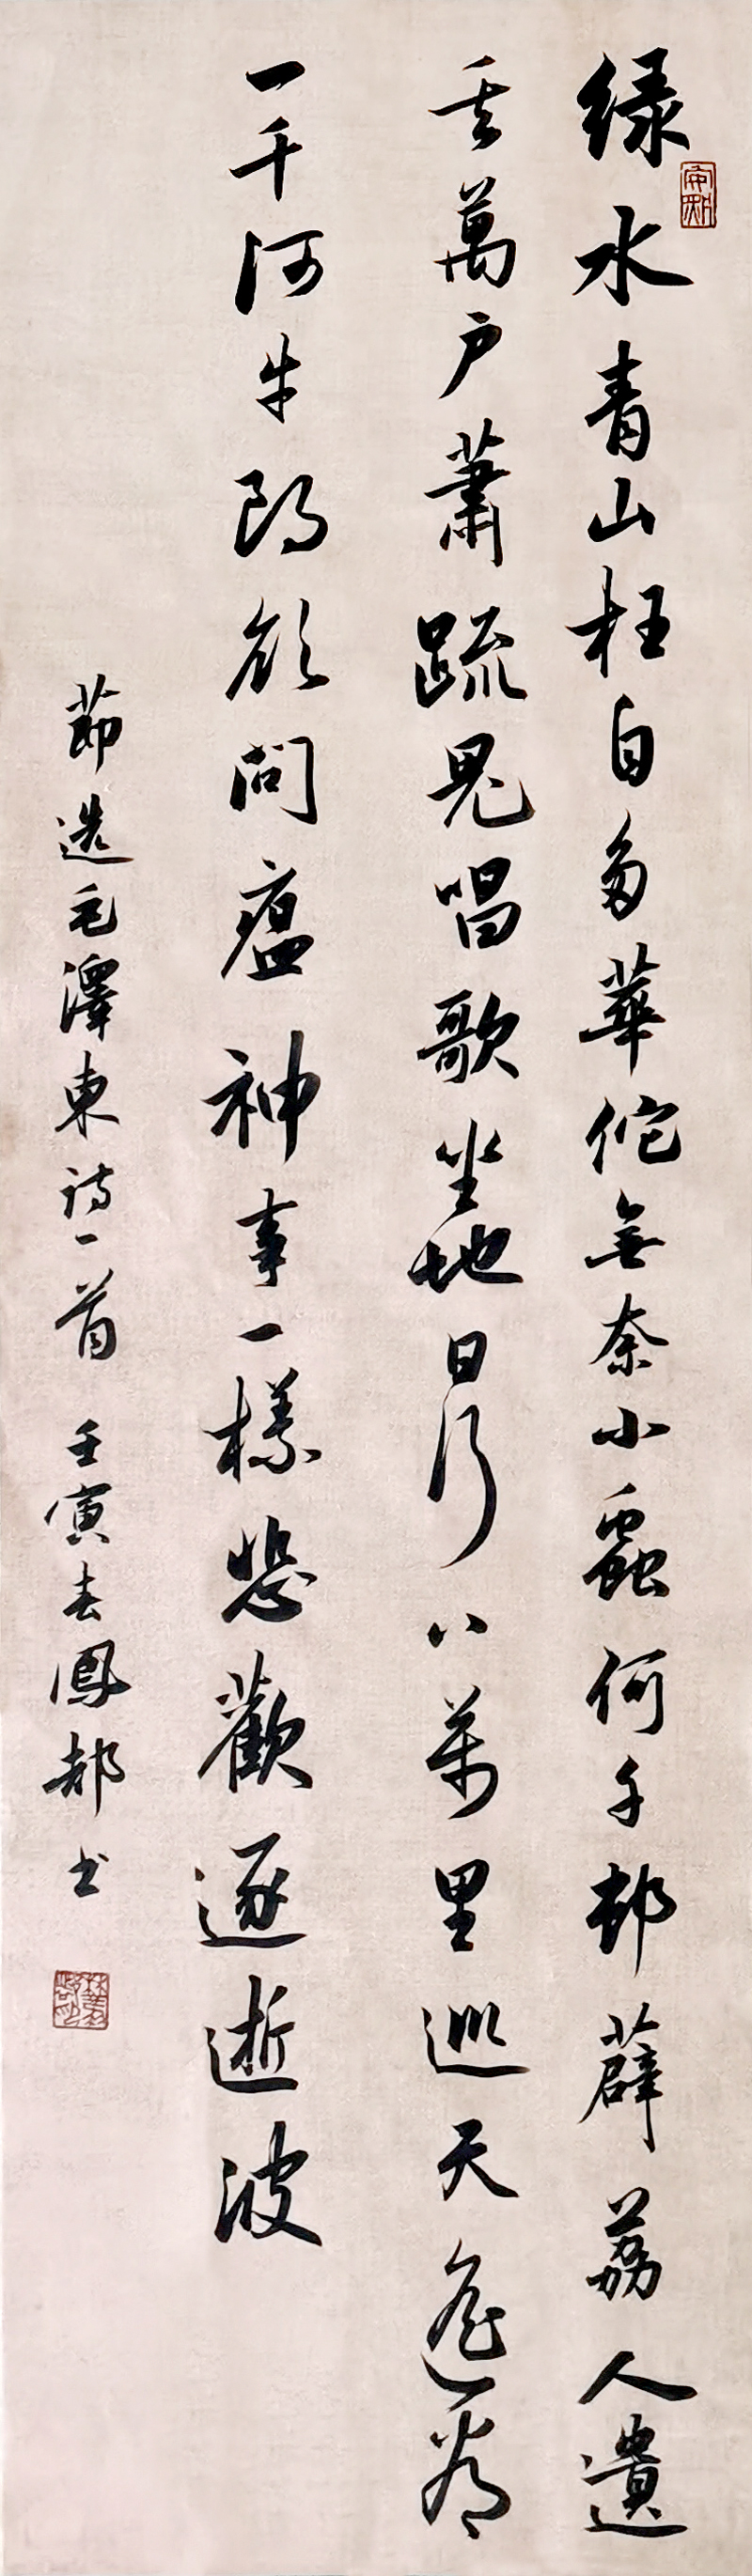 绿水青山枉自多華佗無奈小蟲何千邨薜荔人遺
矢萬户蕭疏鬼唱歌坐地日行八萬里巡天遥看
一千河牛郎欲問瘟神事一樣悲歡逐逝波
節選毛澤東詩一首 壬寅春鳳都书